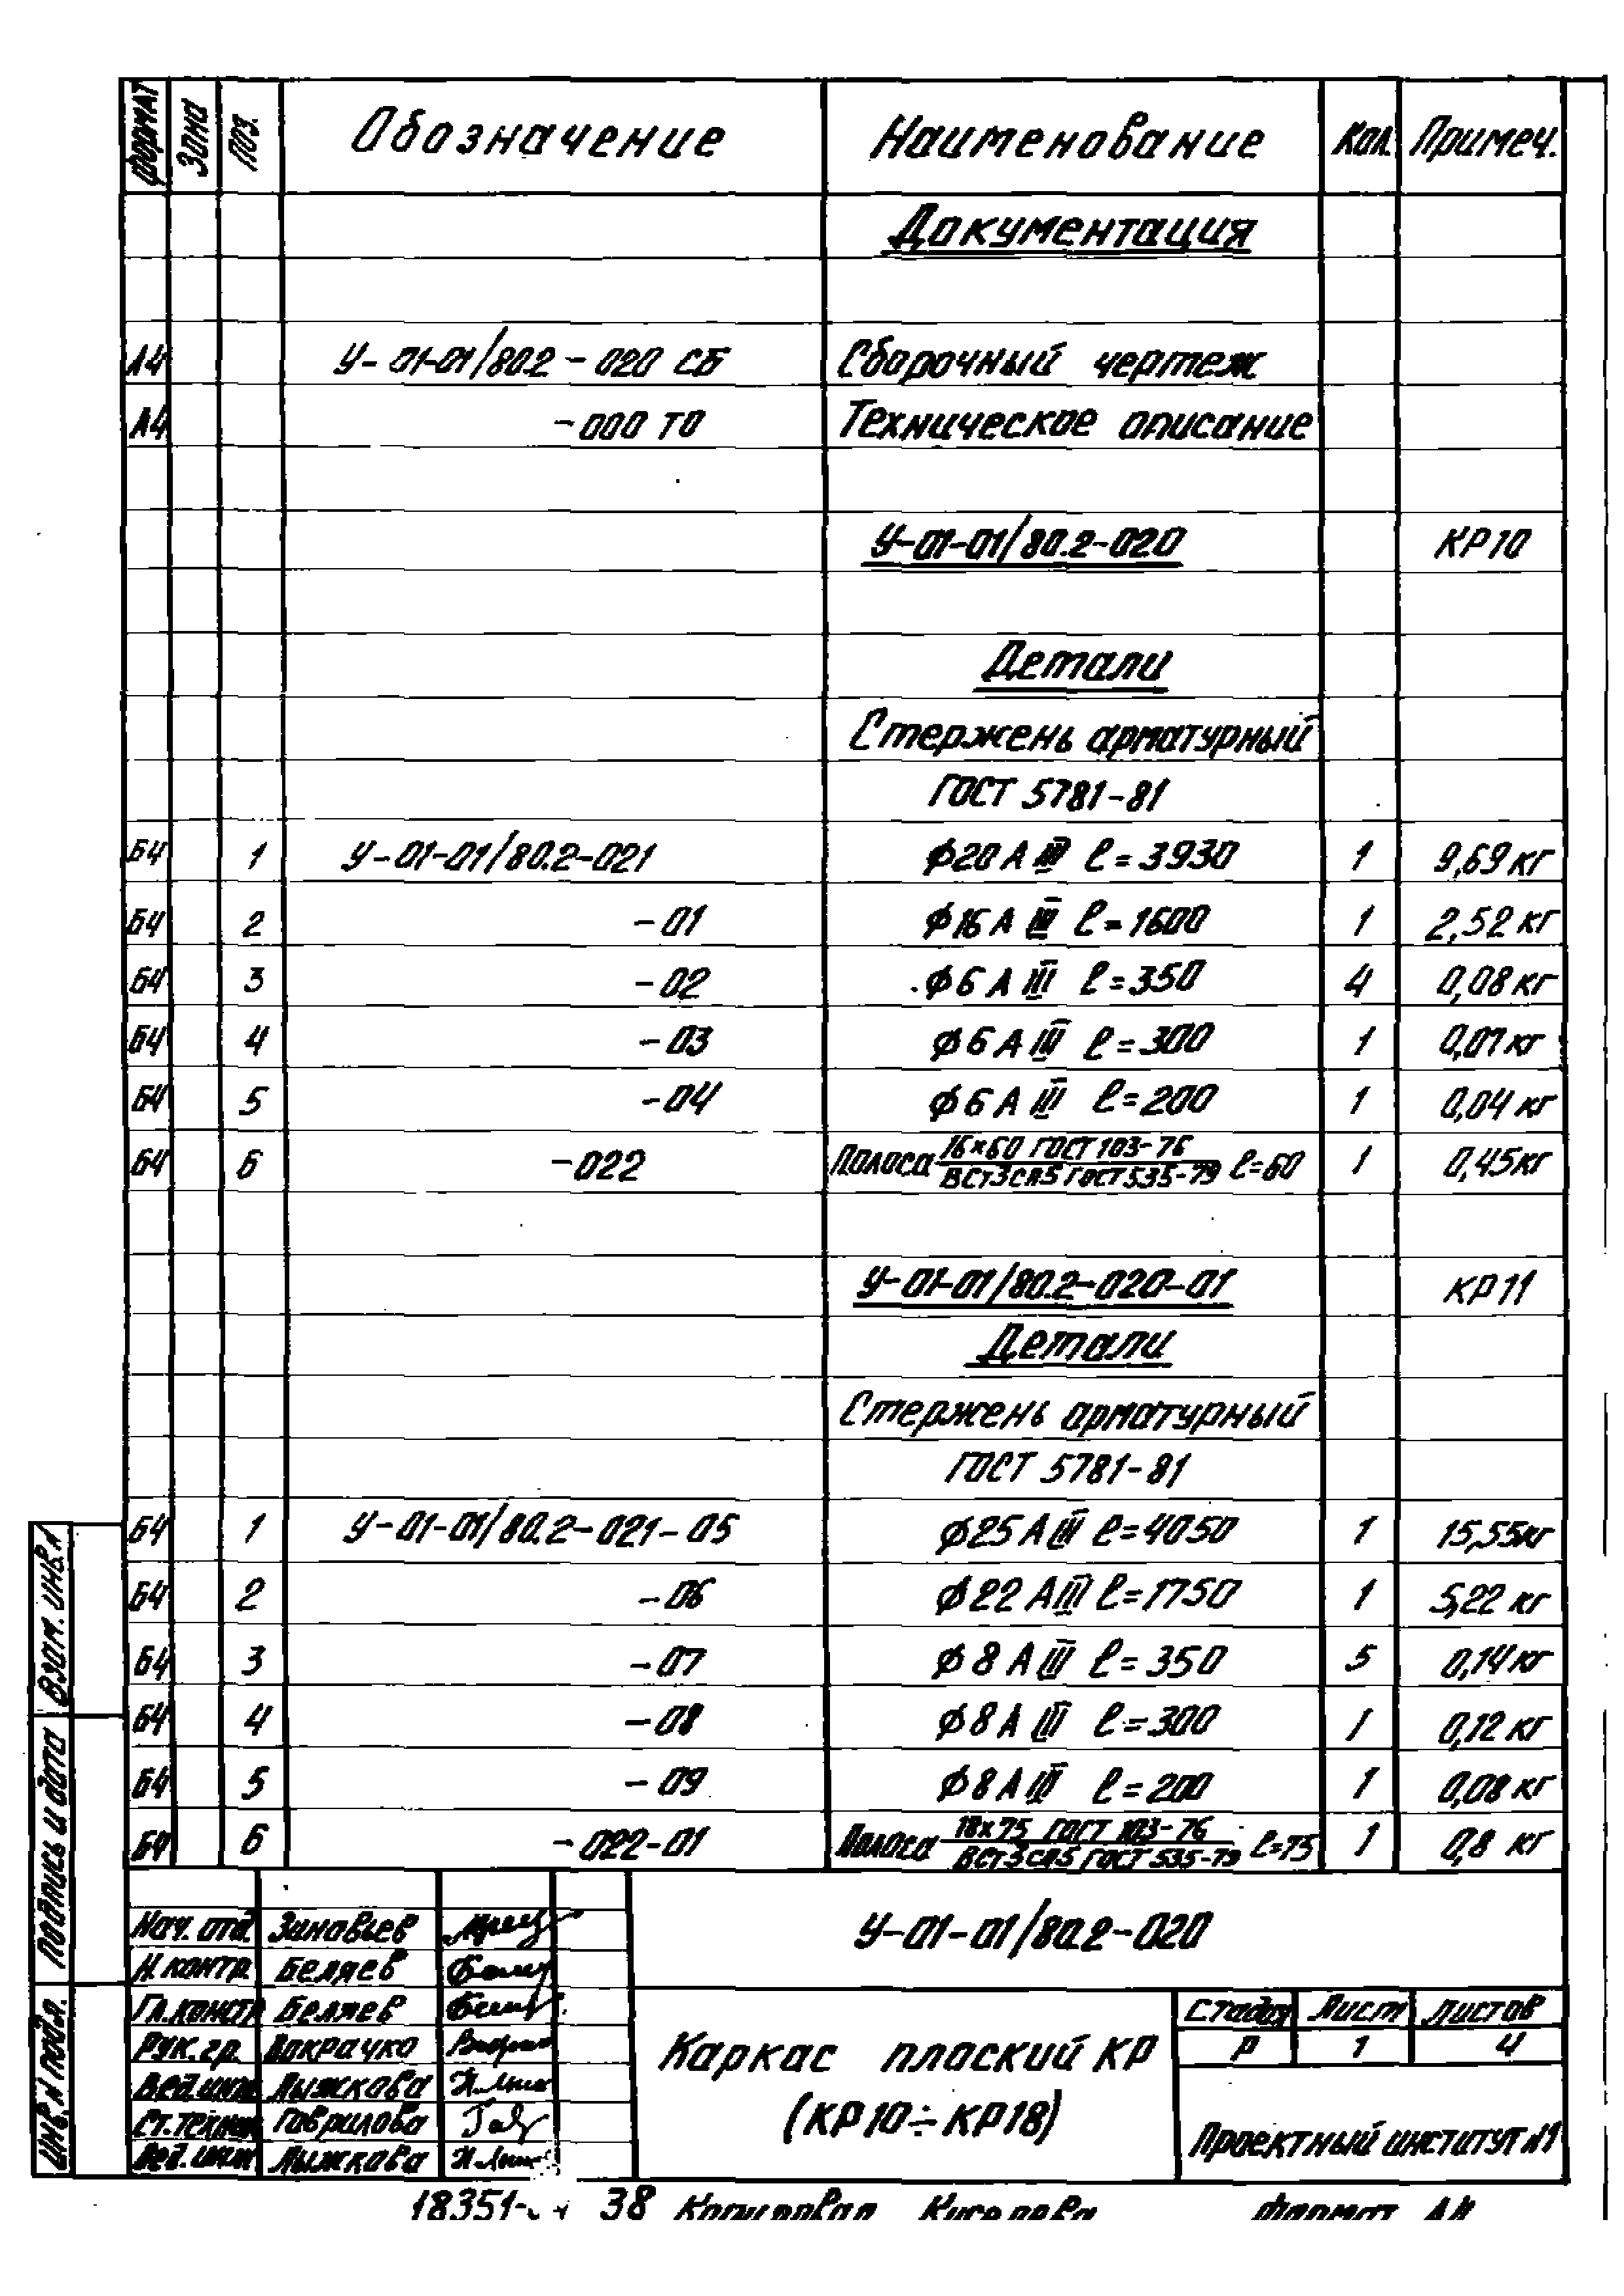 Формат Зона Поз. Обозначение Наименование Кол. Примеч.
Документация
А4 У-01-01/80.2-020 СБ Сборочный чертеж
А4 -000 ТО Техническое описание
У-01-01/80.2-020 КР10
Детали
Стержень арматурный
ГОСТ 5781-81
Б4 1 У-01-01/80.2-021 ф20 А III ℓ=3930 1 9,69 кг
Б4 2 -01 ф16 А III ℓ=1600 1 2,52 кг
Б4 3 -02 ф6 А III ℓ=350 4 0,08 кг
Б4 4 -03 ф6 А III ℓ=300 1 0,07 кг
Б4 5 -04 ф6 А III ℓ=200 1 0,04 кг
Б4 6 -022 Полоса 16×60 ГОСТ 103-76 / ВСт3сп5 ГОСТ 535-79 ℓ=60 1 0,45 кг
У-01-01/80.2-020-01 КР11
Детали
Стержень арматурный
ГОСТ 5781-81
Б4 1 У-01-01/80.2-021-05 ф25 А III ℓ=4050 1 15,55кг
Б4 2 -06 ф22 А III ℓ=1750 1 5,22 кг
Б4 3 -07 ф8 А III ℓ=350 5 0,14 кг
Б4 4 -08 ф8 А III ℓ=300 1 0,12 кг
Б4 5 -09 ф8 А III ℓ=200 1 0,08 кг
Б4 6 -022-01 Полоса 18×75 ГОСТ 103-76 / ВСт3сп5 ГОСТ 535-79 ℓ=75 1 0,8 кг
Взам. инв. №
Подпись и дата
Инв. № подл.
Нач. отд. Зиновьев
Н. контр. Беляев
Гл. констр Беляев
Рук. гр. Вокрачко
Вед. инж Лыжкова
Ст. техник Гаврилова
Вед. инж Лыжкова
У-01-01/80.2-020
Каркас плоский КР
(КР10÷КР18)
Стадия Лист Листов
Р 1 4
Проектный институт №1
18351- 38 Копировал Формат А4